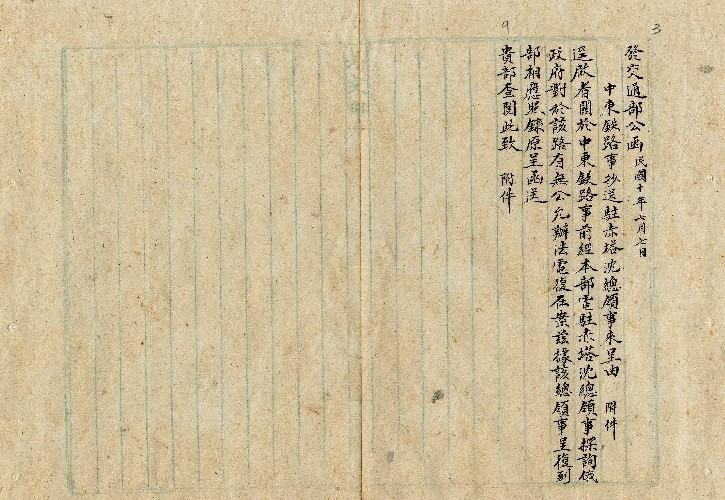 3
9
發交通部公函 民國十年七月七日
中東鉄路事抄送駐赤塔沈總領事來呈由 附件
逕啟者關於中東鉄路事前經本部電駐赤塔沈總領事探詢俄
政府對於該路有無公允辦法電復在案茲據該總領事呈復到
部相應照錄原呈函送
貴部查閱此致 附件